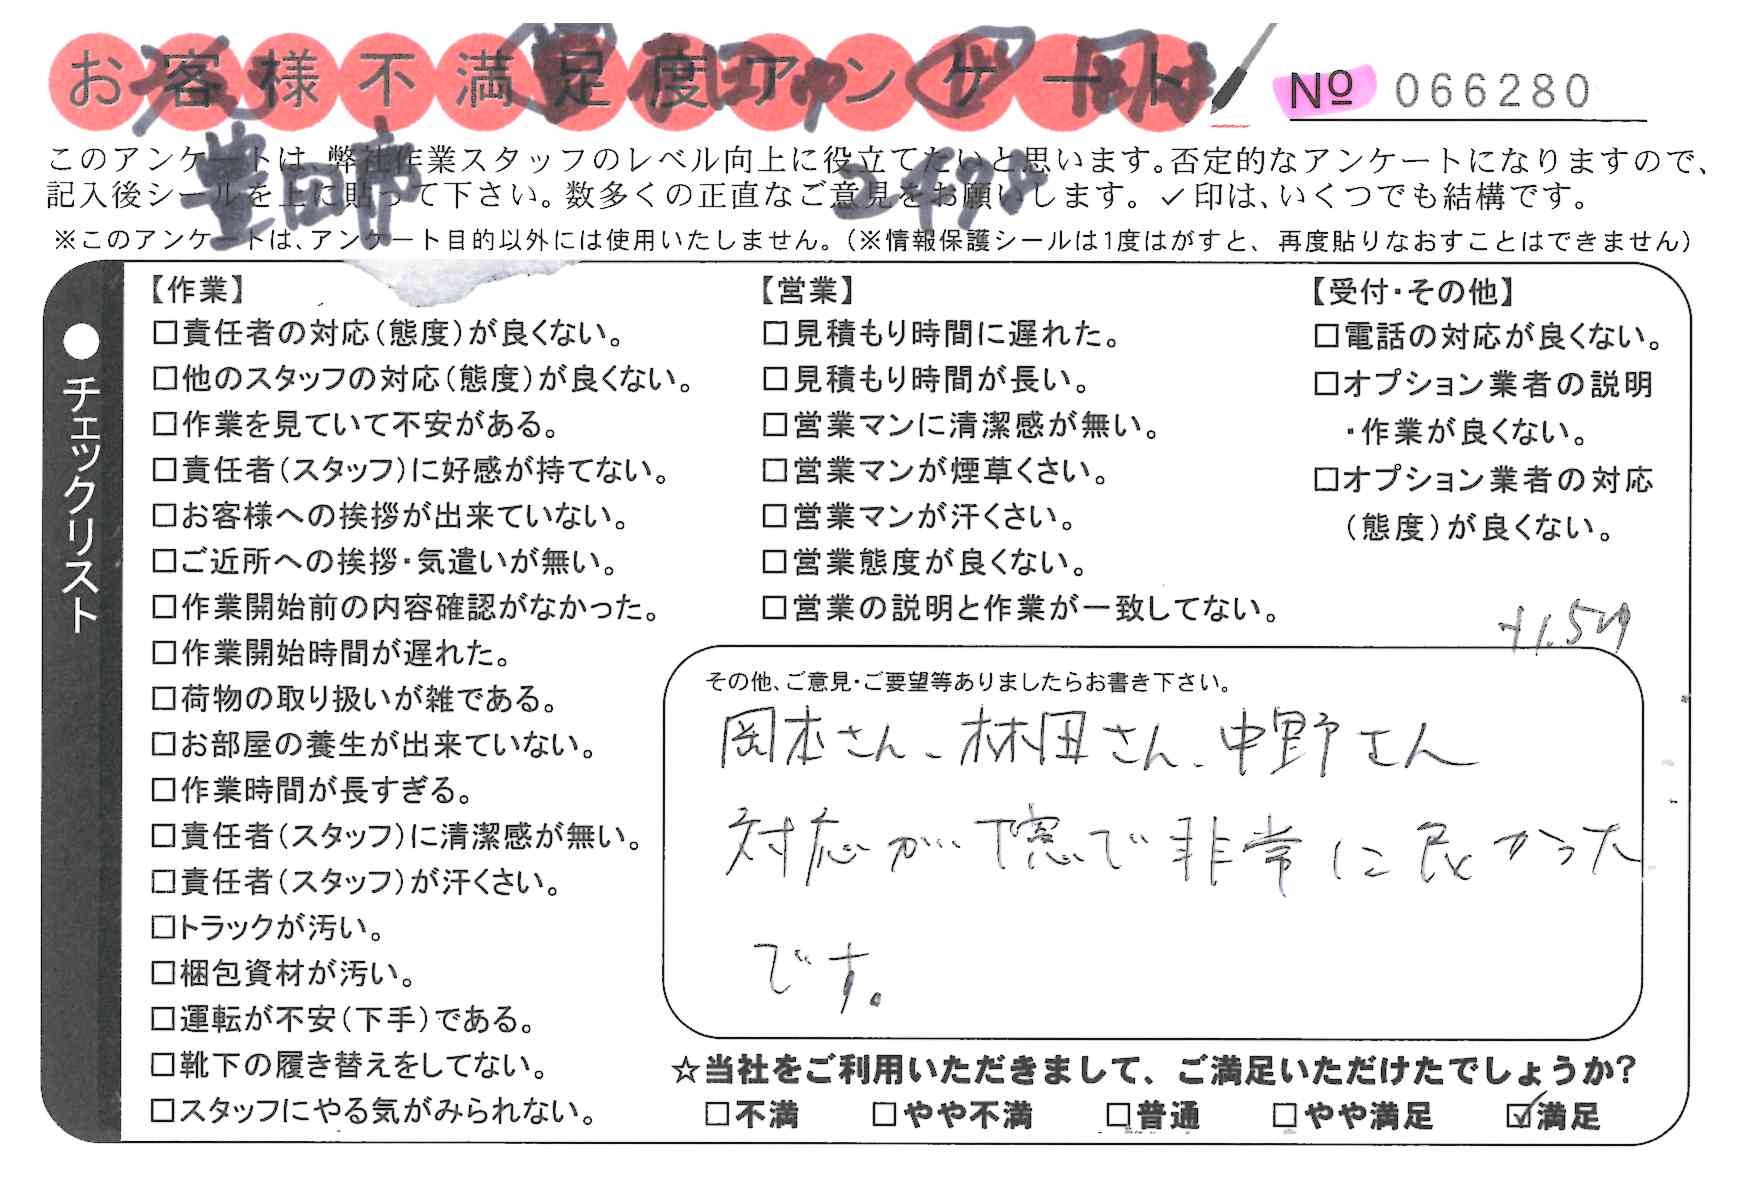 お客様不満足度アンケート
№ 066280
豊岡市
このアンケートは、弊社作業スタッフのレベル向上に役立てたいと思います。否定的なアンケートになりますので、
記入後シールを上に貼って下さい。数多くの正直なご意見をお願いします。✓印は、いくつでも結構です。
※このアンケートは、アンケート目的以外には使用いたしません。（※情報保護シールは1度はがすと、再度貼りなおすことはできません）
●チェックリスト
【作業】
□責任者の対応（態度）が良くない。
□他のスタッフの対応（態度）が良くない。
□作業を見ていて不安がある。
□責任者（スタッフ）に好感が持てない。
□お客様への挨拶が出来ていない。
□ご近所への挨拶・気遣いが無い。
□作業開始前の内容確認がなかった。
□作業開始時間が遅れた。
□荷物の取り扱いが雑である。
□お部屋の養生が出来ていない。
□作業時間が長すぎる。
□責任者（スタッフ）に清潔感が無い。
□責任者（スタッフ）が汗くさい。
□トラックが汚い。
□梱包資材が汚い。
□運転が不安（下手）である。
□靴下の履き替えをしてない。
□スタッフにやる気がみられない。
【営業】
□見積もり時間に遅れた。
□見積もり時間が長い。
□営業マンに清潔感が無い。
□営業マンが煙草くさい。
□営業マンが汗くさい。
□営業態度が良くない。
□営業の説明と作業が一致してない。
【受付・その他】
□電話の対応が良くない。
□オプション業者の説明
・作業が良くない。
□オプション業者の対応
（態度）が良くない。
その他、ご意見・ご要望等ありましたらお書き下さい。
岡本さん、林田さん、中野さん
対応が丁寧で非常に良かった
です。
☆当社をご利用いただきまして、ご満足いただけたでしょうか?
□不満 □やや不満 □普通 □やや満足 ☑満足